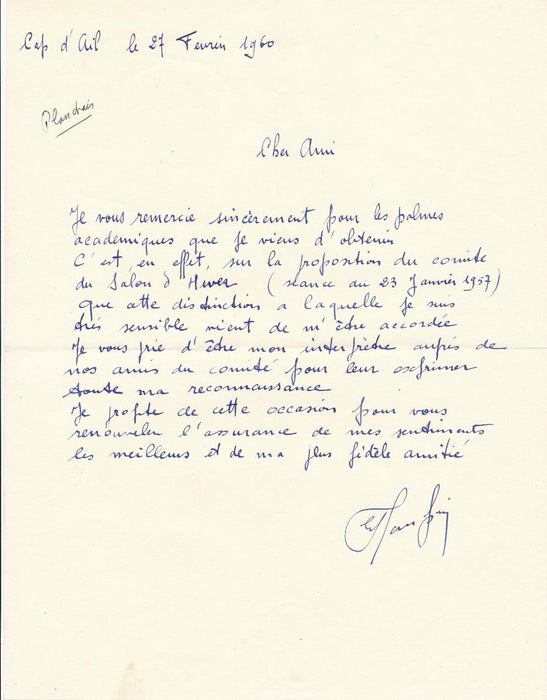 Cap d'Ail le 27 Fevrier 1960
Planchais
Cher Ami
Je vous remercie sincèrement pour les palmes
academiques que je viens d'obtenir
C'est, en effet, sur la proposition du comité
du Salon d'Hiver (séance du 23 Janvier 1957)
que cette distinction a laquelle je suis
très sensible vient de m'être accordée
Je vous prie d'être mon interprètre auprès de
nos amis du comité pour leur exprimer
toute ma reconnaissance
Je profite de cette occasion pour vous
renouveler l'assurance de mes sentiments
les meilleurs et de ma plus fidèle amitié